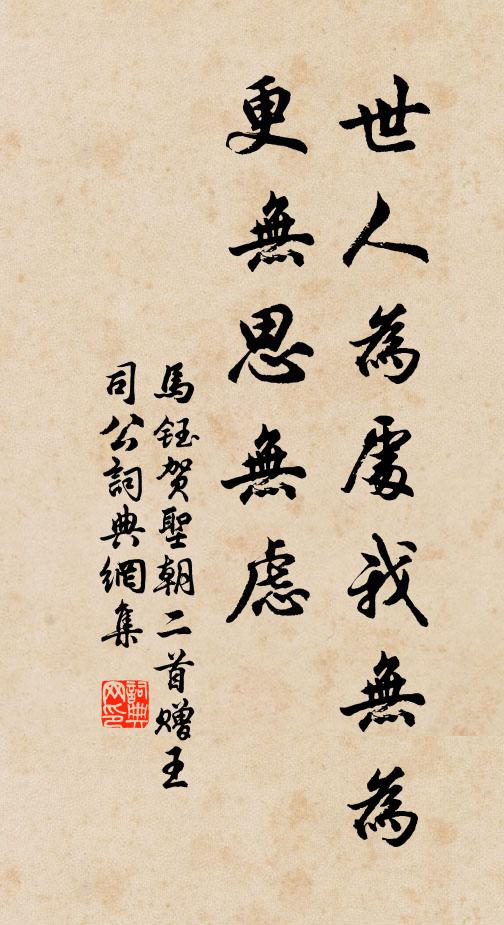 世人為處我無為
更無思無慮
馬鈺賀聖朝二首贈王
司公詞典網集
詞典
网印